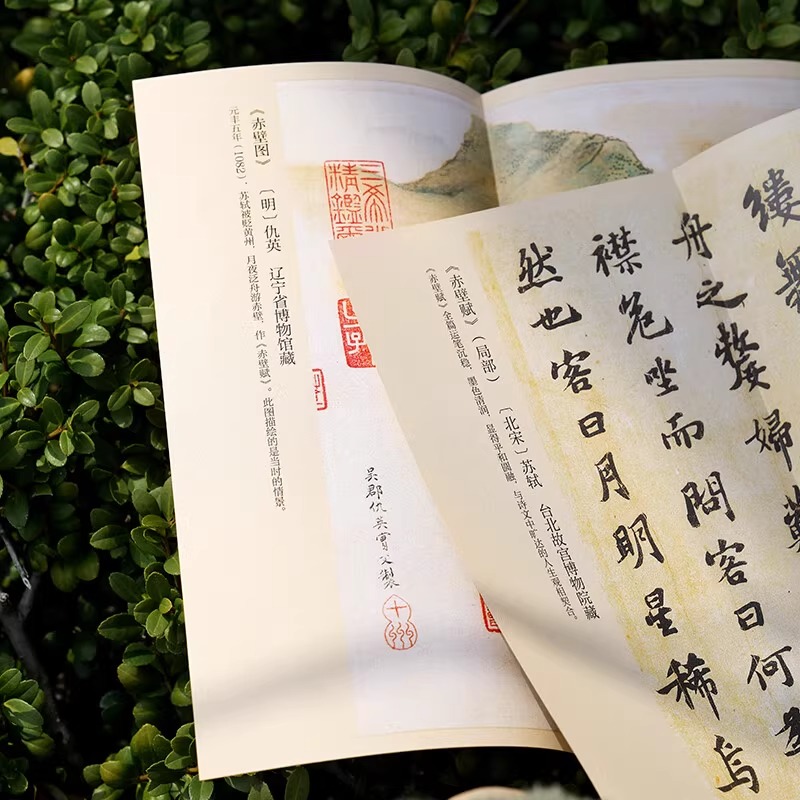 《赤壁图》 〔明〕仇英 辽宁省博物馆藏
元丰五年（1082），苏轼被贬黄州，月夜泛舟游赤壁，作《赤壁赋》。此图描绘的是当时的情景。
三希
精鉴玺
吴郡仇英實父製
十洲
《赤壁赋》（局部） 〔北宋〕苏轼 台北故宫博物院藏
《赤壁赋》全篇运笔沉稳，墨色清润，显得平和圆融，与诗文中旷达的人生观相契合。
縷
舟之嫠婦
襟危坐而問客曰何
然也客曰月明星稀烏